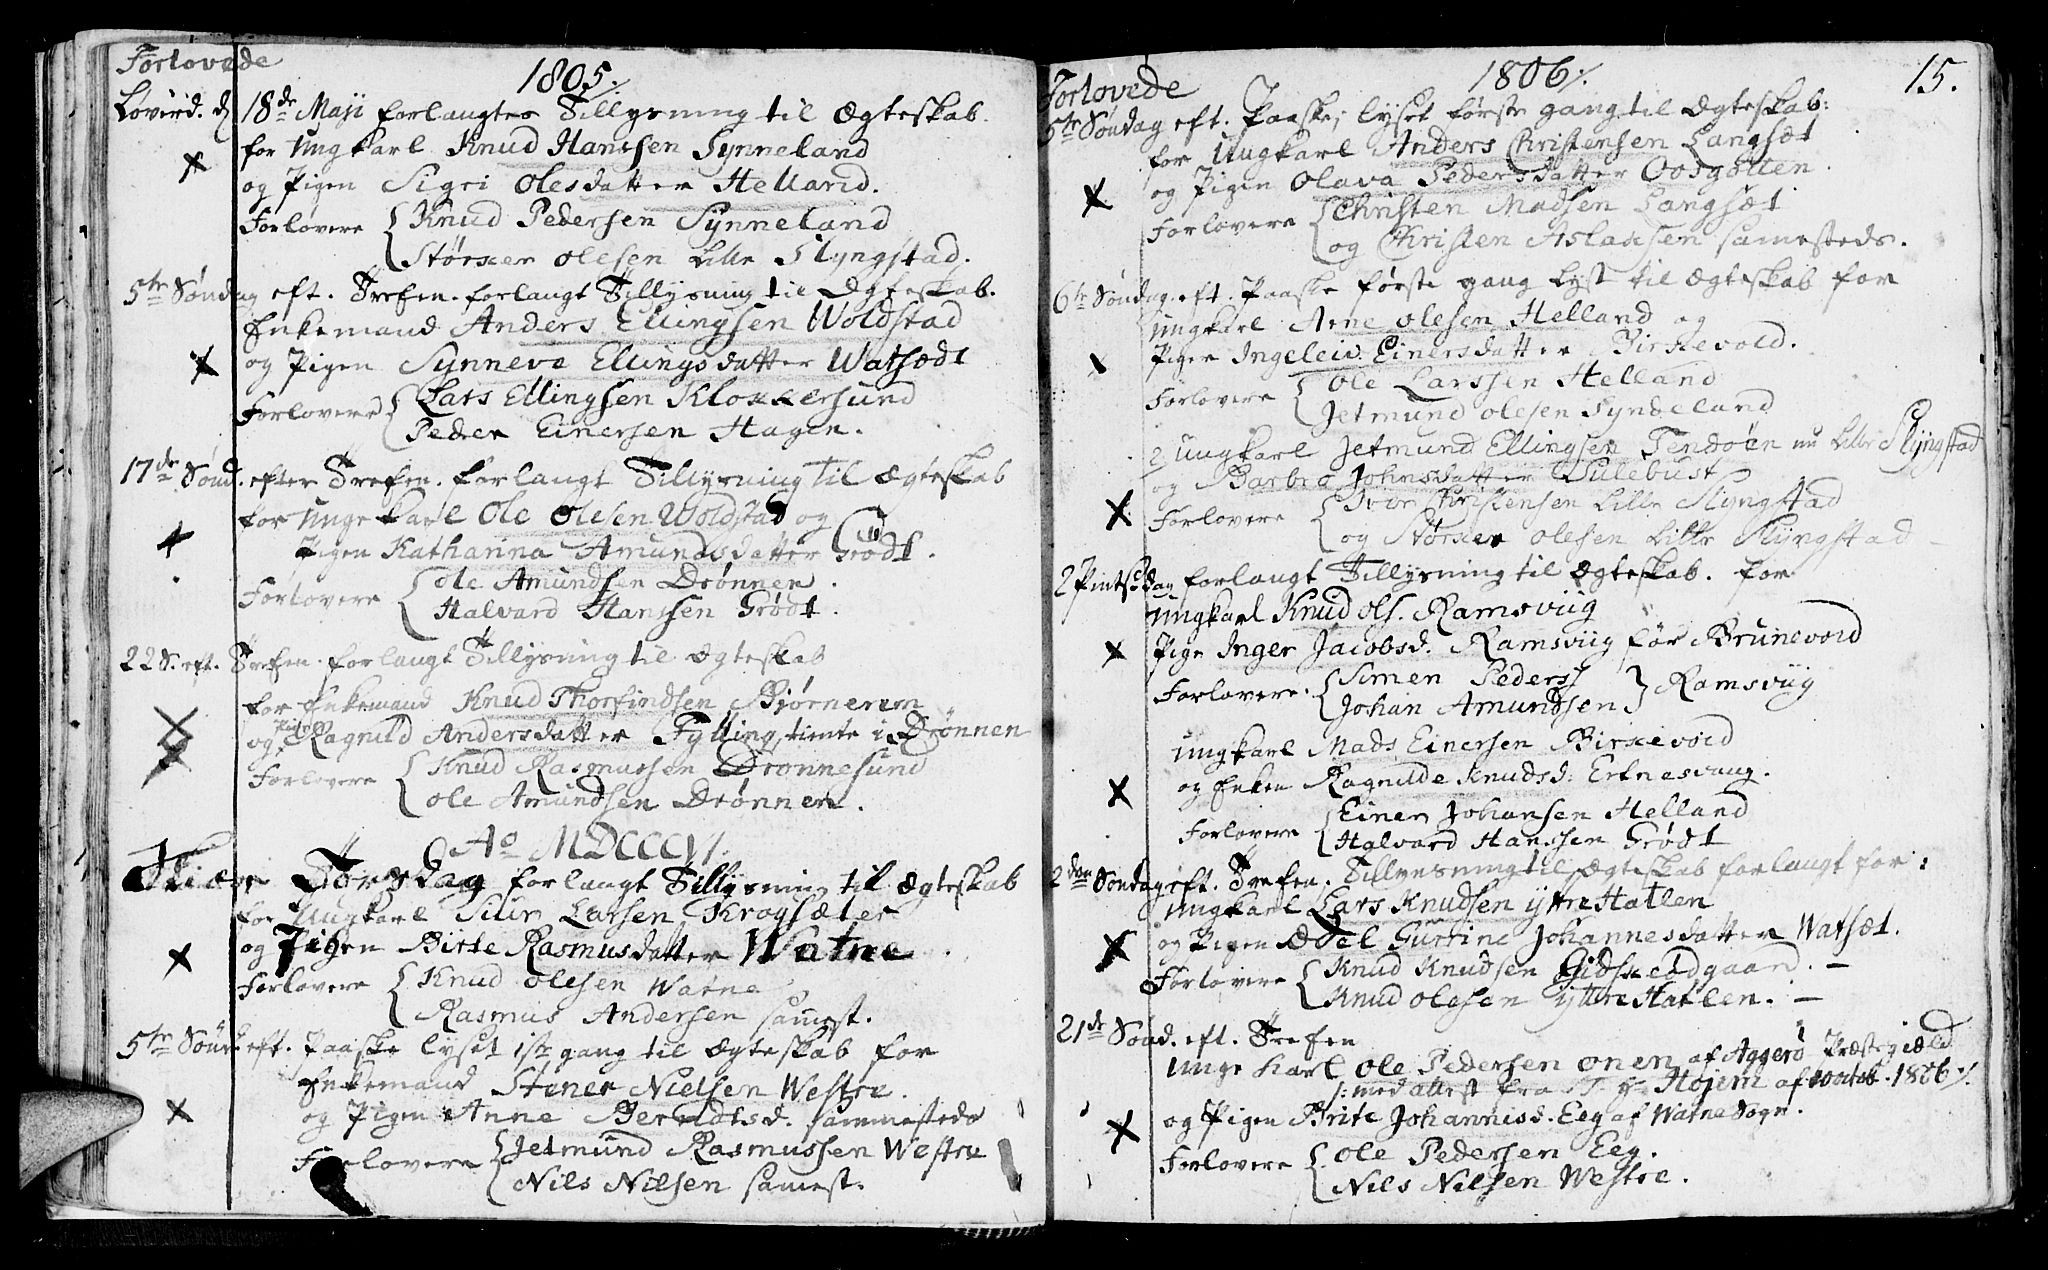 Forlovede
1805 /.
Løverd. d 18de Maji forlangtes Tillysning til Ægteskab.
for Ungkarl Knud Hanssen Synneland
og Pigen Sigri Olesdatter Helland.
Forlovere { Knud Pedersen Synneland
Størker Olesen Lille Slyngstad.
5te Søndag eft. Trefen. forlangt Tillysning til Ægteskab.
Enkemand Anders Ellingsen Woldstad
og Pigen Synneve Ellingsdatter Watsædt
Forlovere { Lars Ellingsen Klokkersund
Peder Einersen Hagen.
17de Sønd. efter Trefen. forlangt Tillysning til Ægteskab
for Unge Karl Ole Olesen Woldstad og
Pigen Katharina Amundsdatter Grödt.
Forlovere { Ole Amundsen Drønnen.
Halvard Hanssen Grødt.
22 S. eft. Trefen. forlangt Tillysning til Ægteskab
for Enkemand Knud Thorfindsen Bjørnerem
og Pigen Ragnild Andersdatter Fylling, tiente i Drønnen
Forlovere { Knud Rasmussen Dronnesund
Ole Amundsen Drønnen.
Ao MDCCCVI.
Skiær Torsdag forlangt Tillysning til Ægteskab
for Ungkarl Siur Larsen Krogsæter
og Pigen Birte Rasmusdatter Watne
Forlovere { Knud Olesen Watne
Rasmus Andersen samest.
5te Sønd. eft. Paaske lyset 1ste gang til Ægteskab for
Enkemand Stener Nielsen Westre.
og Pigen Anne Berndtsd. sammesteds
Forlovere { Jetmund Rasmussen Westre
Nils Nilsen samest.
Forlovede
1806 /.
15.
5te Søndag eft. Paaske, lyset første gang til Ægteskab:
for Ungkarl Anders Christensen Langsæt
og Pigen Olava Pedersdatter Oosgotten.
Forlovere { Christen Madsen Langsæt
og Christen Aslaksen samesteds.
6te Søndag. eft. Paaske første gang lyst til Ægteskab for
Ungkarl Arne Olesen Helland og
Pigen Ingeleiv Einersdatter Birkevold.
Forlovere { Ole Larssen Helland
Jetmund Olesen Syndeland
2 Ungkarl Jetmund Ellingsen Tendøen nu Lille Slyngstad
og Barbro Johnsdatter Dulebust
Forlovere { Iver Christensen Lille Slyngstad
og Størker Olesen Lille Slyngstad
2 Pintsedag forlangt Tillysning til Ægteskab. for
Ungkarl Knud Ols. Ramsviig
Pige Inger Jacobsd. Ramsviig før Brunevold
Forlovere. { Simen Pederss
Johan Amundsen } Ramsviig
Ungkarl Mads Einersen Birkevold
og Enken Ragnilde Knudsd: Erknesvaag.
Forlovere { Einer Johansen Helland
Halvard Hanssen Grødt
2den Søndag eft. Trefen. Tillysning til Ægteskab forlangt for:
Ungkarl Lars Knudsen ytre Hatlen
og Pigen Ædel Gurrine Johannesdatter Watsæt.
Forlovere { Knud Knudsen Gidskeødgaard. —
Knud Olesen Yttre Hatlen. —
21de Sønd. eft. Trefen
Unge Karl Ole Pedersen Onen af Aggerø Præstegield
/: med attest fra Hr Höjem af 10 octob. 1806 /.
og Pigen Brite Johannisd. Eeg af Watne Sogn.
Forlovere { Ole Pedersen Eeg.
Nils Nilsen Westre.